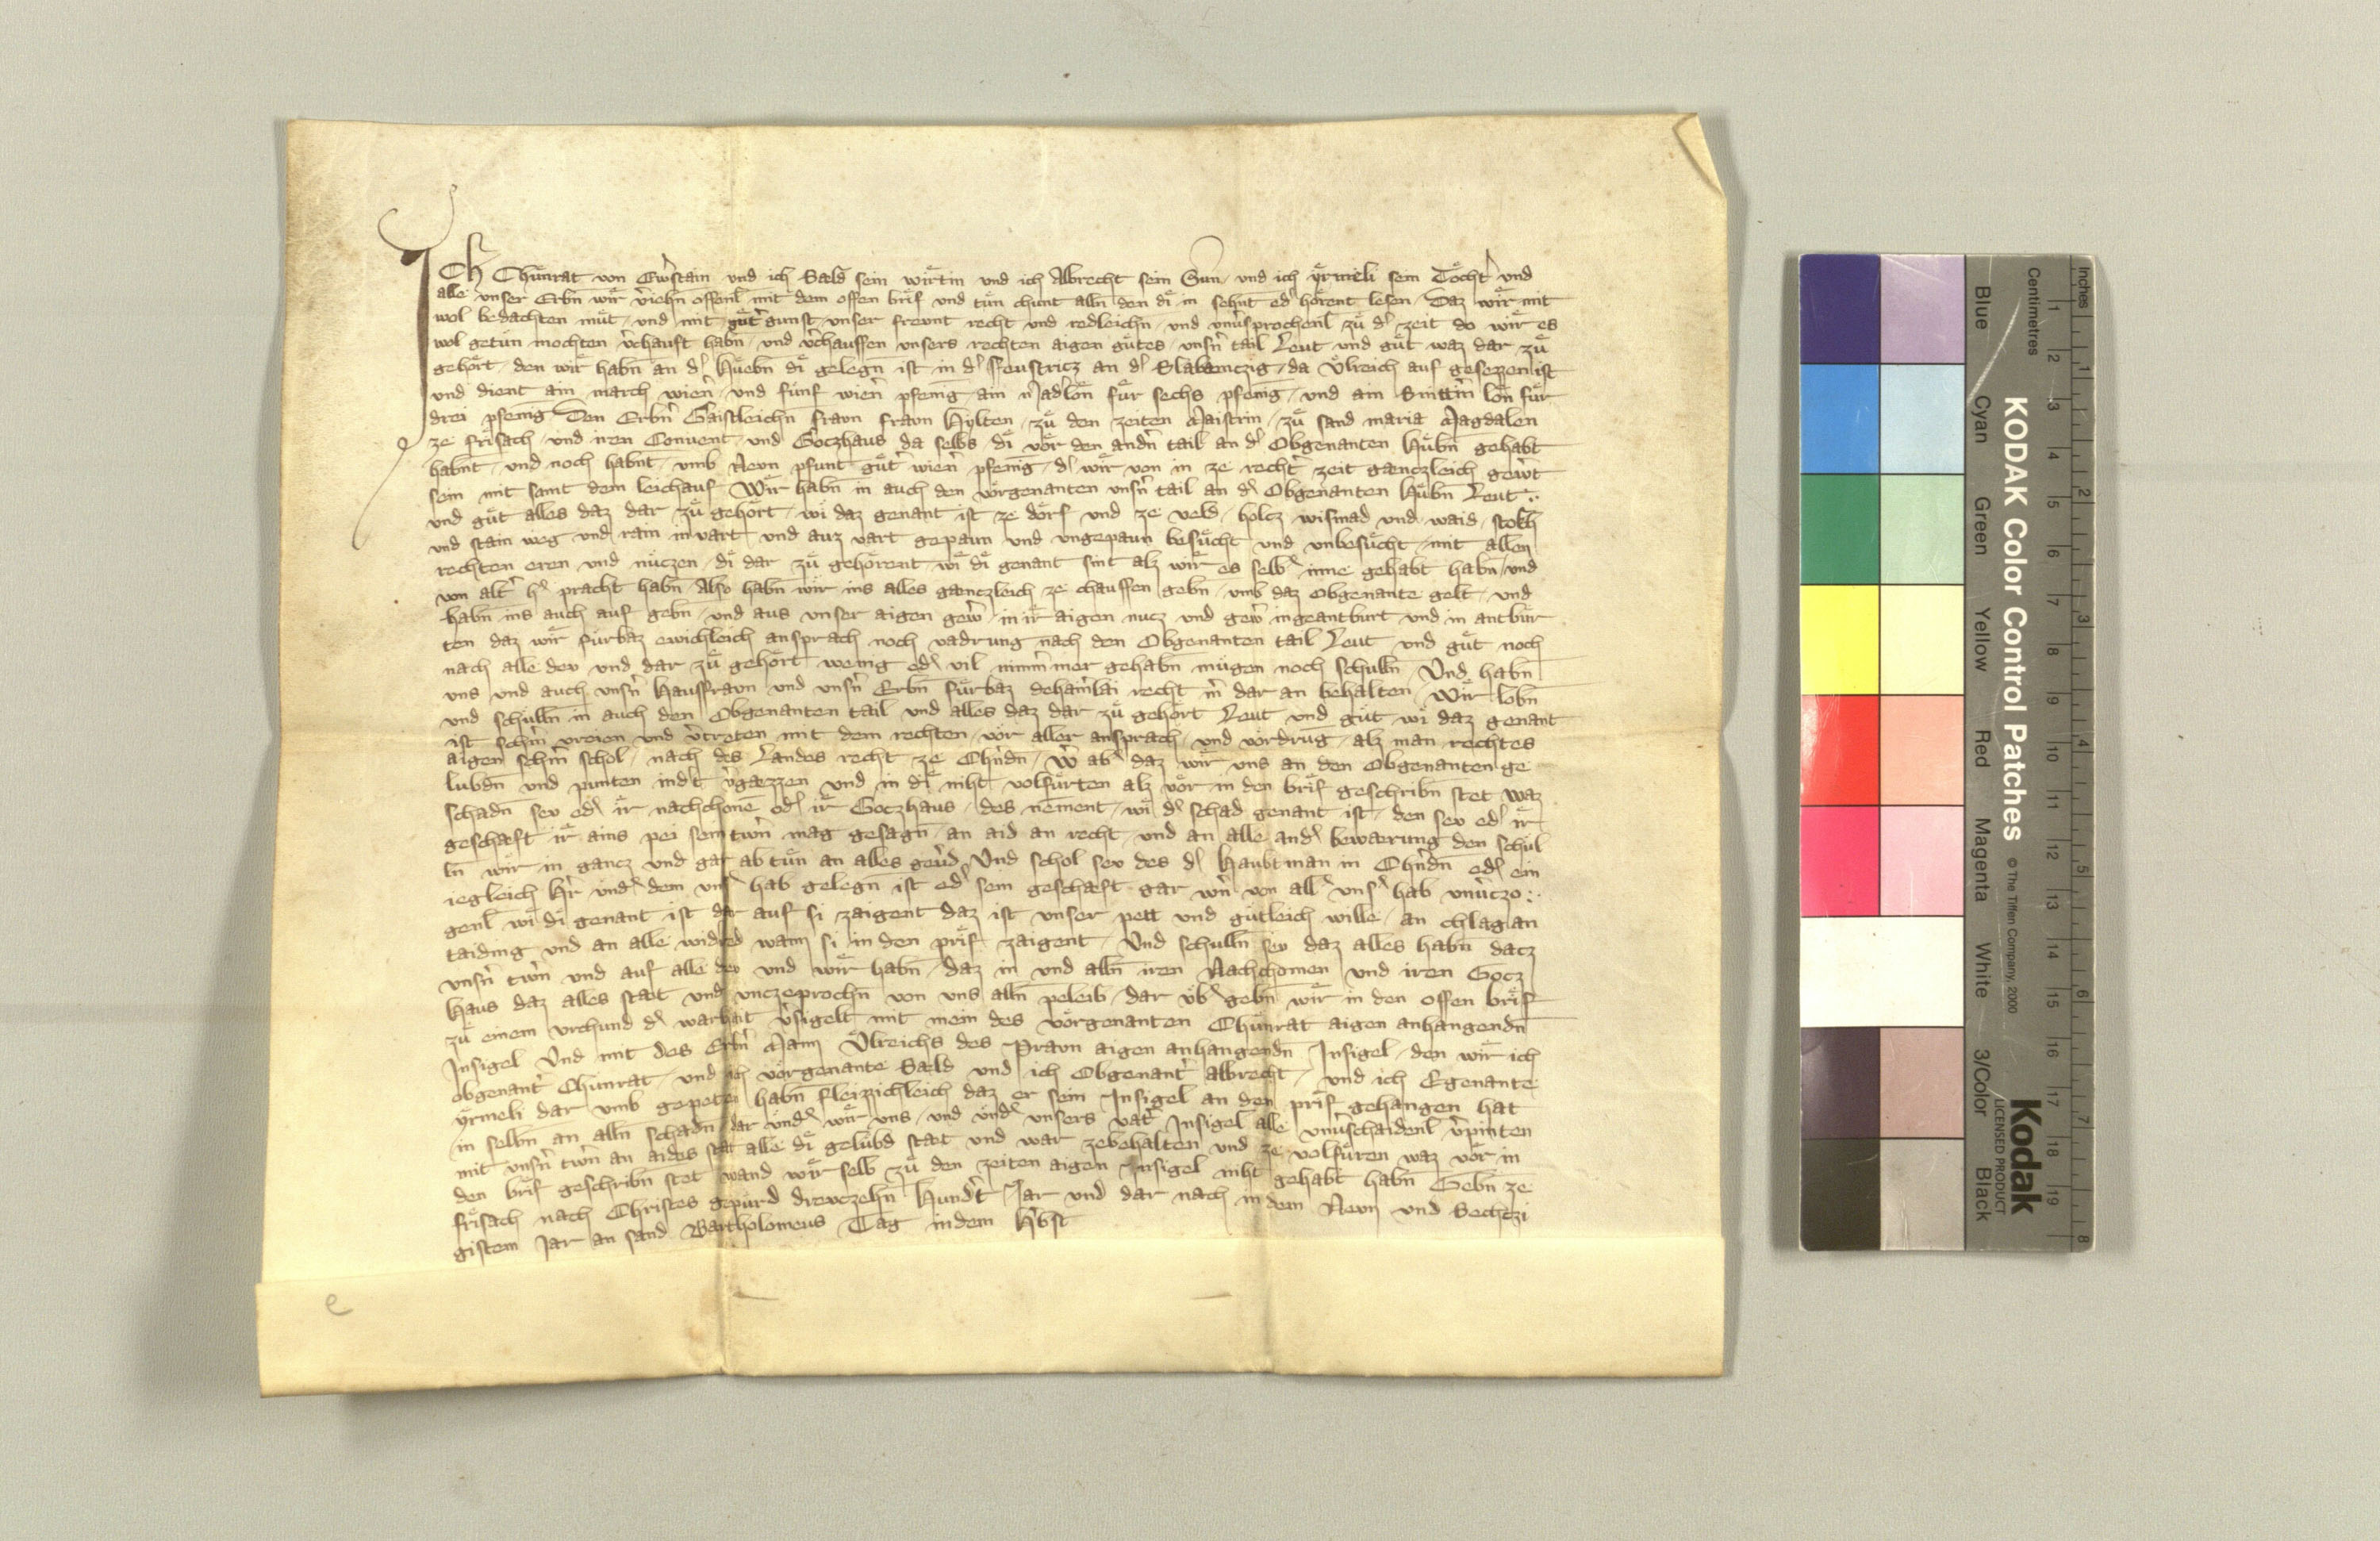 ICh Chůnrat von Ew̄stain und ich Sæld sein wirtin und ich Albrecht sein Sun und ich yrmeli sein Tochtˀ und
alle unser Erbn̄ wir vˀiehn̄ offenl̄ mit dem offen brif und tůn chunt alln̄ den di in sehnt odˀ horent lesen Daz wir mit
wol bedachten můt und mit gůtˀ gunst unser frevnt recht und redleichn̄ und unvˀsprochenl̄ zů dˀ zeit do wir es
wol getůn mochten vˀchauft habn̄ und vˀchauffen unsers rechten aigen gůtes unsˀn tail Leut und gůt waz dar zů
gehort den wir habn̄ an dˀ Hůebn̄ di gelegn̄ ist in dˀ Feustricz an dˀ Slabenczig da Ůlreich auf gesezzen ist
und dient ain march wienˀ und funf wienˀ pfenīg ain Madˀlon fur sechs pfenīg und ain Snittˀn lon fur
drei pfenīg Den Erbˀn Gaistleichn̄ fravn fravn Hylten zů den zeiten Maistrin zů sand maria Magdalen
ze frisach und iren Convent und Goczhaus da selbs di vor den andˀn tail an dˀ Obgenanten Hůbn̄ gehabt
habnt und noch habnt umb Nevn pfunt gůtˀ wienˀ pfenīg dˀ wir von in ze rechtˀ zeit gænczleich gewˀt
sein mit samt dem leichauf Wir habn̄ in auch den vorgenanten unsˀn tail an dˀ Obgenanten Hůbn̄ Leut
und gůt alles daz dar zů gehort wi daz genant ist ze dorf und ze veld holcz wismad und waid stokh
und stain weg und rain invart und auz vart gepaun und ungepaun besůcht und unbesůcht mit allen
rechten eren und nuczen di dar zů gehorent wi di genant sint alz wir es selbˀ inne gehabt habn̄ und
von altˀ hˀ pracht habn̄ Also habn̄ wir ins alles gænczleich ze chauffen gebn̄ umb daz Obgenante gelt und
habn̄ ins auch auf gebn̄ und aus unser aigen gewˀ in ir aigen nucz und gewˀ ingeantburt und in antbur
ten daz wir furbaz ewichleich ansprach noch vadrung nach den Obgenanten tail Leut und gůt noch
nach alle dev und dar zů gehort wenig odˀ vil nimmˀmer gehabn̄ mugen noch schulln̄ Und habn̄
uns und auch unsˀn Hausfravn und unsˀn Erbn̄ furbaz dehainˀlai recht mˀ dar an behalten Wir lobn̄
und schulln̄ in auch den Obgenanten tail und alles daz dar zů gehort Leut und gůt wi daz genant
ist schˀm vreien und vˀtreten mit dem rechten vor aller ansprach und vordrūg alz man rechtes
aigen schˀm schol nach des Landes recht ze Chˀndn̄ Wˀ abˀ daz wir uns an den Obgenanten ge
lubdn̄ und punten indˀt vˀgæzzen und in di niht volfurten alz vor in den brif geschribn̄ stet waz
schadn̄ sev odˀ ir nachchomē odˀ ir Goczhaus des nement wi dˀ schad genant ist den sev odˀ ir
geschæft ir ains pei sein twˀn mag gesagn̄ an aid an recht und an alle andˀ bewærung den schul
ln̄ wir in gancz und gar ab tůn an alles gevˀd Und schol sev des dˀ Haubtman in Chˀndn̄ odˀ ein
iegleich Hˀr undˀ dem unsˀ hab gelegn̄ ist odˀ sein geschæft gar wˀn von allˀ unsˀ hab unvˀczo
genl̄ wi di genant ist dar auf si zaigent daz ist unser pett und gůtleich wille an chlag an
taiding und an alle widˀred wann si in den prif zaigent Und schulln̄ sev daz alles habn̄ dacz
unsˀn twˀn und auf alle dev und wir habn̄ daz in und alln̄ iren Nachchomen und iren Gocz
Haus daz alles stæt und unczeprochn̄ von uns alln̄ peleib dar ubˀ gebn̄ wir in den offen brif
zů einem urchund dˀ warhait vˀsigelt mit mein des vorgenanten Chůnrat aigen anhangendn̄
Insigel Und mit des Erbˀn Mann Ulreichs des Pravn aigen anhangendn̄ Insigel den wir ich
obgenantˀ Chůnrat und ich vorgenante Sæld und ich Obgenantˀ albrecht und ich Egenante
yrmeli dar umb gepeten habn̄ fleizzichleich daz er sein Insigel an den prif gehangen hat
in selbn̄ an alln̄ schadn̄ dar undˀ wir uns und undˀ unsers vatˀ Insigel alle unvˀschaidenl̄ vˀpinten
mit unsˀn twˀn an aides stat alle di gelubd stæt und war zebehalten und ze volfuren waz vor in
den brif geschribn̄ stet wand wir selb zů den zeiten aigen Insigel niht gehabt habn̄ Gebn̄ ze
frisach nach Christes gepurd drevczehn̄ Hundˀt Jar und dar nach in dem Nevn und Sechczi
gistem Jar an sand Bartholomeus Tag in dem Hˀbst
e
Inches
Centimetres
1
2
3
4
5
6
7
8
9
10
11
12
13
14
15
16
17
18
19
1
2
3
4
5
6
7
8
KODAK Color Control Patches
© The Tiffen Company, 2000
Kodak
LICENSED PRODUCT
Blue
Cyan
Green
Yellow
Red
Magenta
White
3/Color
Black